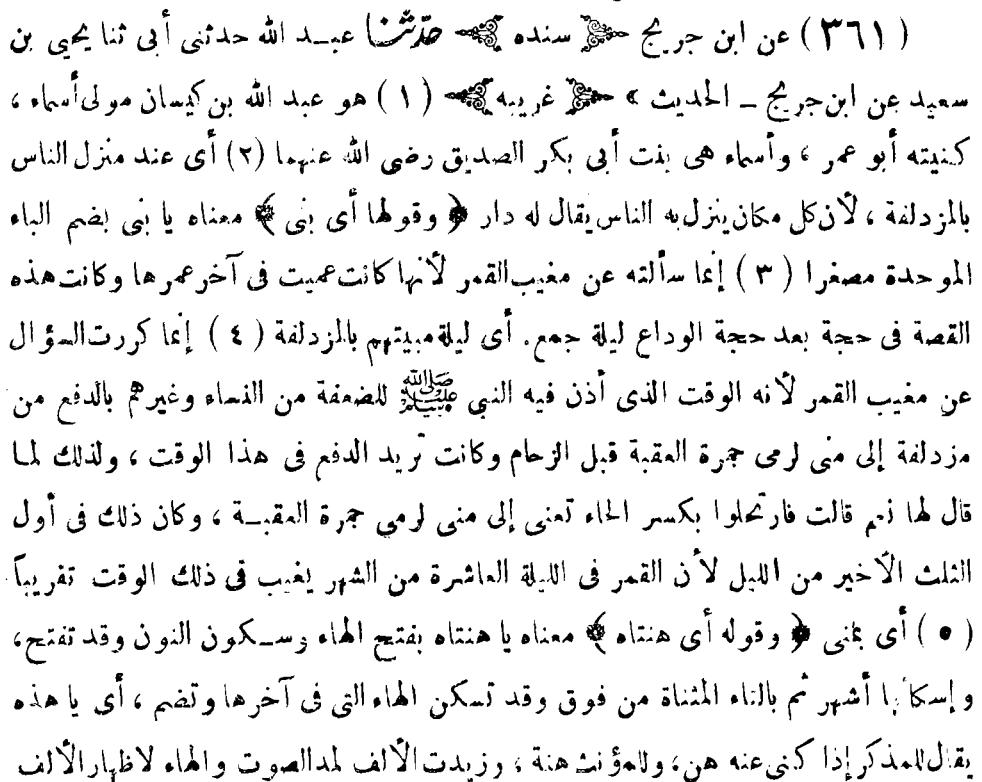 (٣٦١) عن ابن جريج ﴿ سنده ﴾ حدثنا عبد الله حدثنى أبى ثنا يحيى بن
سعيد عن ابن جريج ــ الحديث » ﴿ غريبه ﴾ (١) هو عبد الله بن كيسان مولى أسماء ،
كنيته أبو عمر ، وأسماء هى بنت أبى بكر الصديق رضى الله عنهما (٢) أى عند منزل الناس
بالمزدلفة ، لأن كل مكان ينزل به الناس يقال له دار ﴿ وقولها أى بنى ﴾ معناه يا بنى بضم الباء
الموحدة مصغرا (٣) إنما سألته عن مغيب القمر لأنها كانت عميت فى آخر عمرها وكانت هذه
القصة فى حجة بعد حجة الوداع ليلة جمع. أى ليلة مبيتهم بالمزدلفة (٤) إنما كررت السؤال
عن مغيب القمر لأنه الوقت الذى أذن فيه النبى ﷺ للضعفة من النساء وغيرهم بالدفع من
مزدلفة إلى منى لرمى جمرة العقبة قبل الزحام وكانت تريد الدفع فى هذا الوقت ، ولذلك لما
قال لها نعم قالت فارتحلوا بكسر الحاء تعنى إلى منى لرمى جمرة العقبــة ، وكان ذلك فى أول
الثلث الأخير من الليل لأن القمر فى الليلة العاشرة من الشهر يغيب فى ذلك الوقت تقريباً
(٥) أى بمنى ﴿ وقوله أى هنتاه ﴾ معناه يا هنتاه بفتح الهاء وسـكون النون وقد تفتح،
وإسكانها أشهر ثم بالتاء المثناة من فوق وقد تسكن الهاء التى فى آخرها وتضم ، أى يا هذه
يقال للمذكر إذا كنى عنه هن، وللمؤنث هنة ، وزيدت الألف لمد الصوت والهاء لاظهار الألف